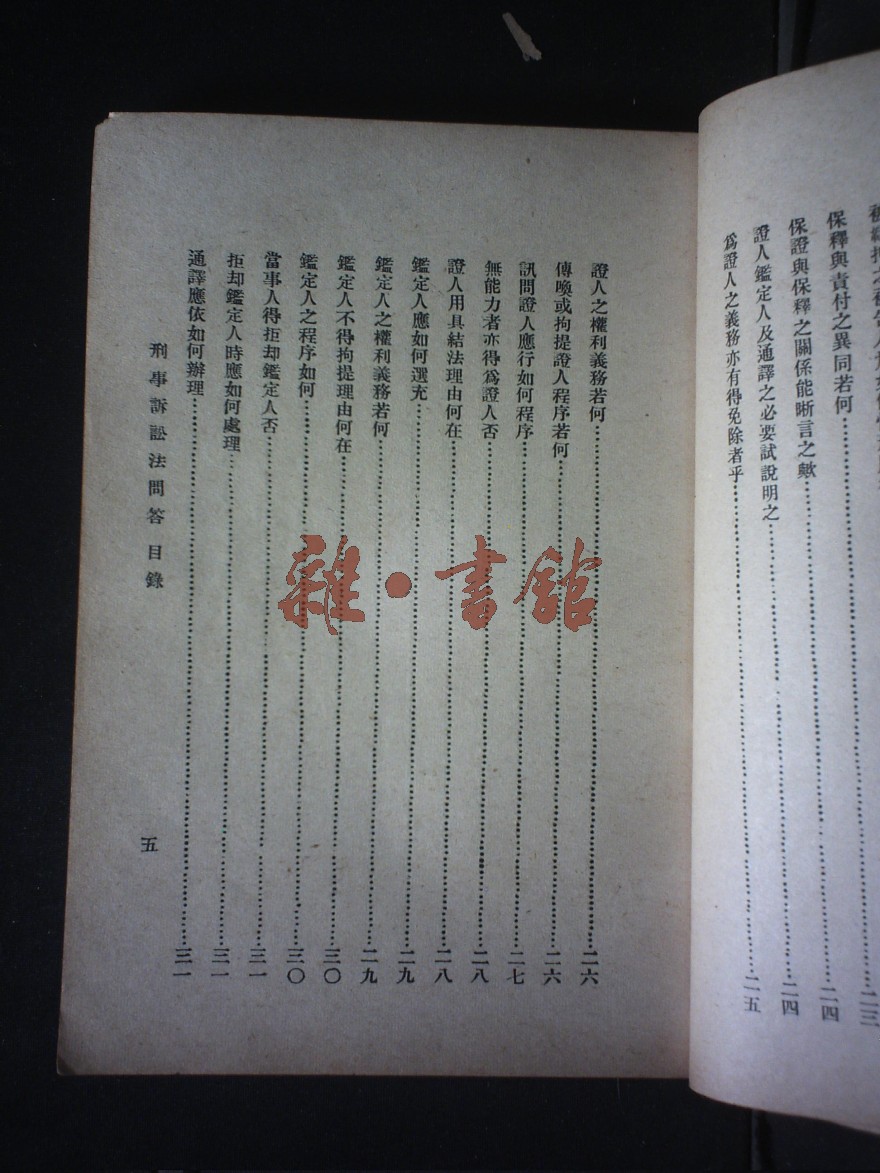 保釋與責付之異同若何……二四
保證與保釋之關係能晰言之歟……二四
證人鑑定人及通譯之必要試說明之……
爲證人之義務亦有得免除者乎……二五
證人之權利義務若何……二六
傳喚或拘提證人程序若何……二六
訊問證人應行如何程序……二七
無能力者亦得爲證人否……二八
證人用具結法理由何在……二八
鑑定人應如何選充……二九
鑑定人之權利義務若何……二九
鑑定人不得拘提理由何在……三〇
鑑定人之程序如何……三〇
當事人得拒却鑑定人否……三一
拒却鑑定人時應如何處理……三一
通譯應依如何辦理……三一
刑事訴訟法問答 目錄
五
雜·書館